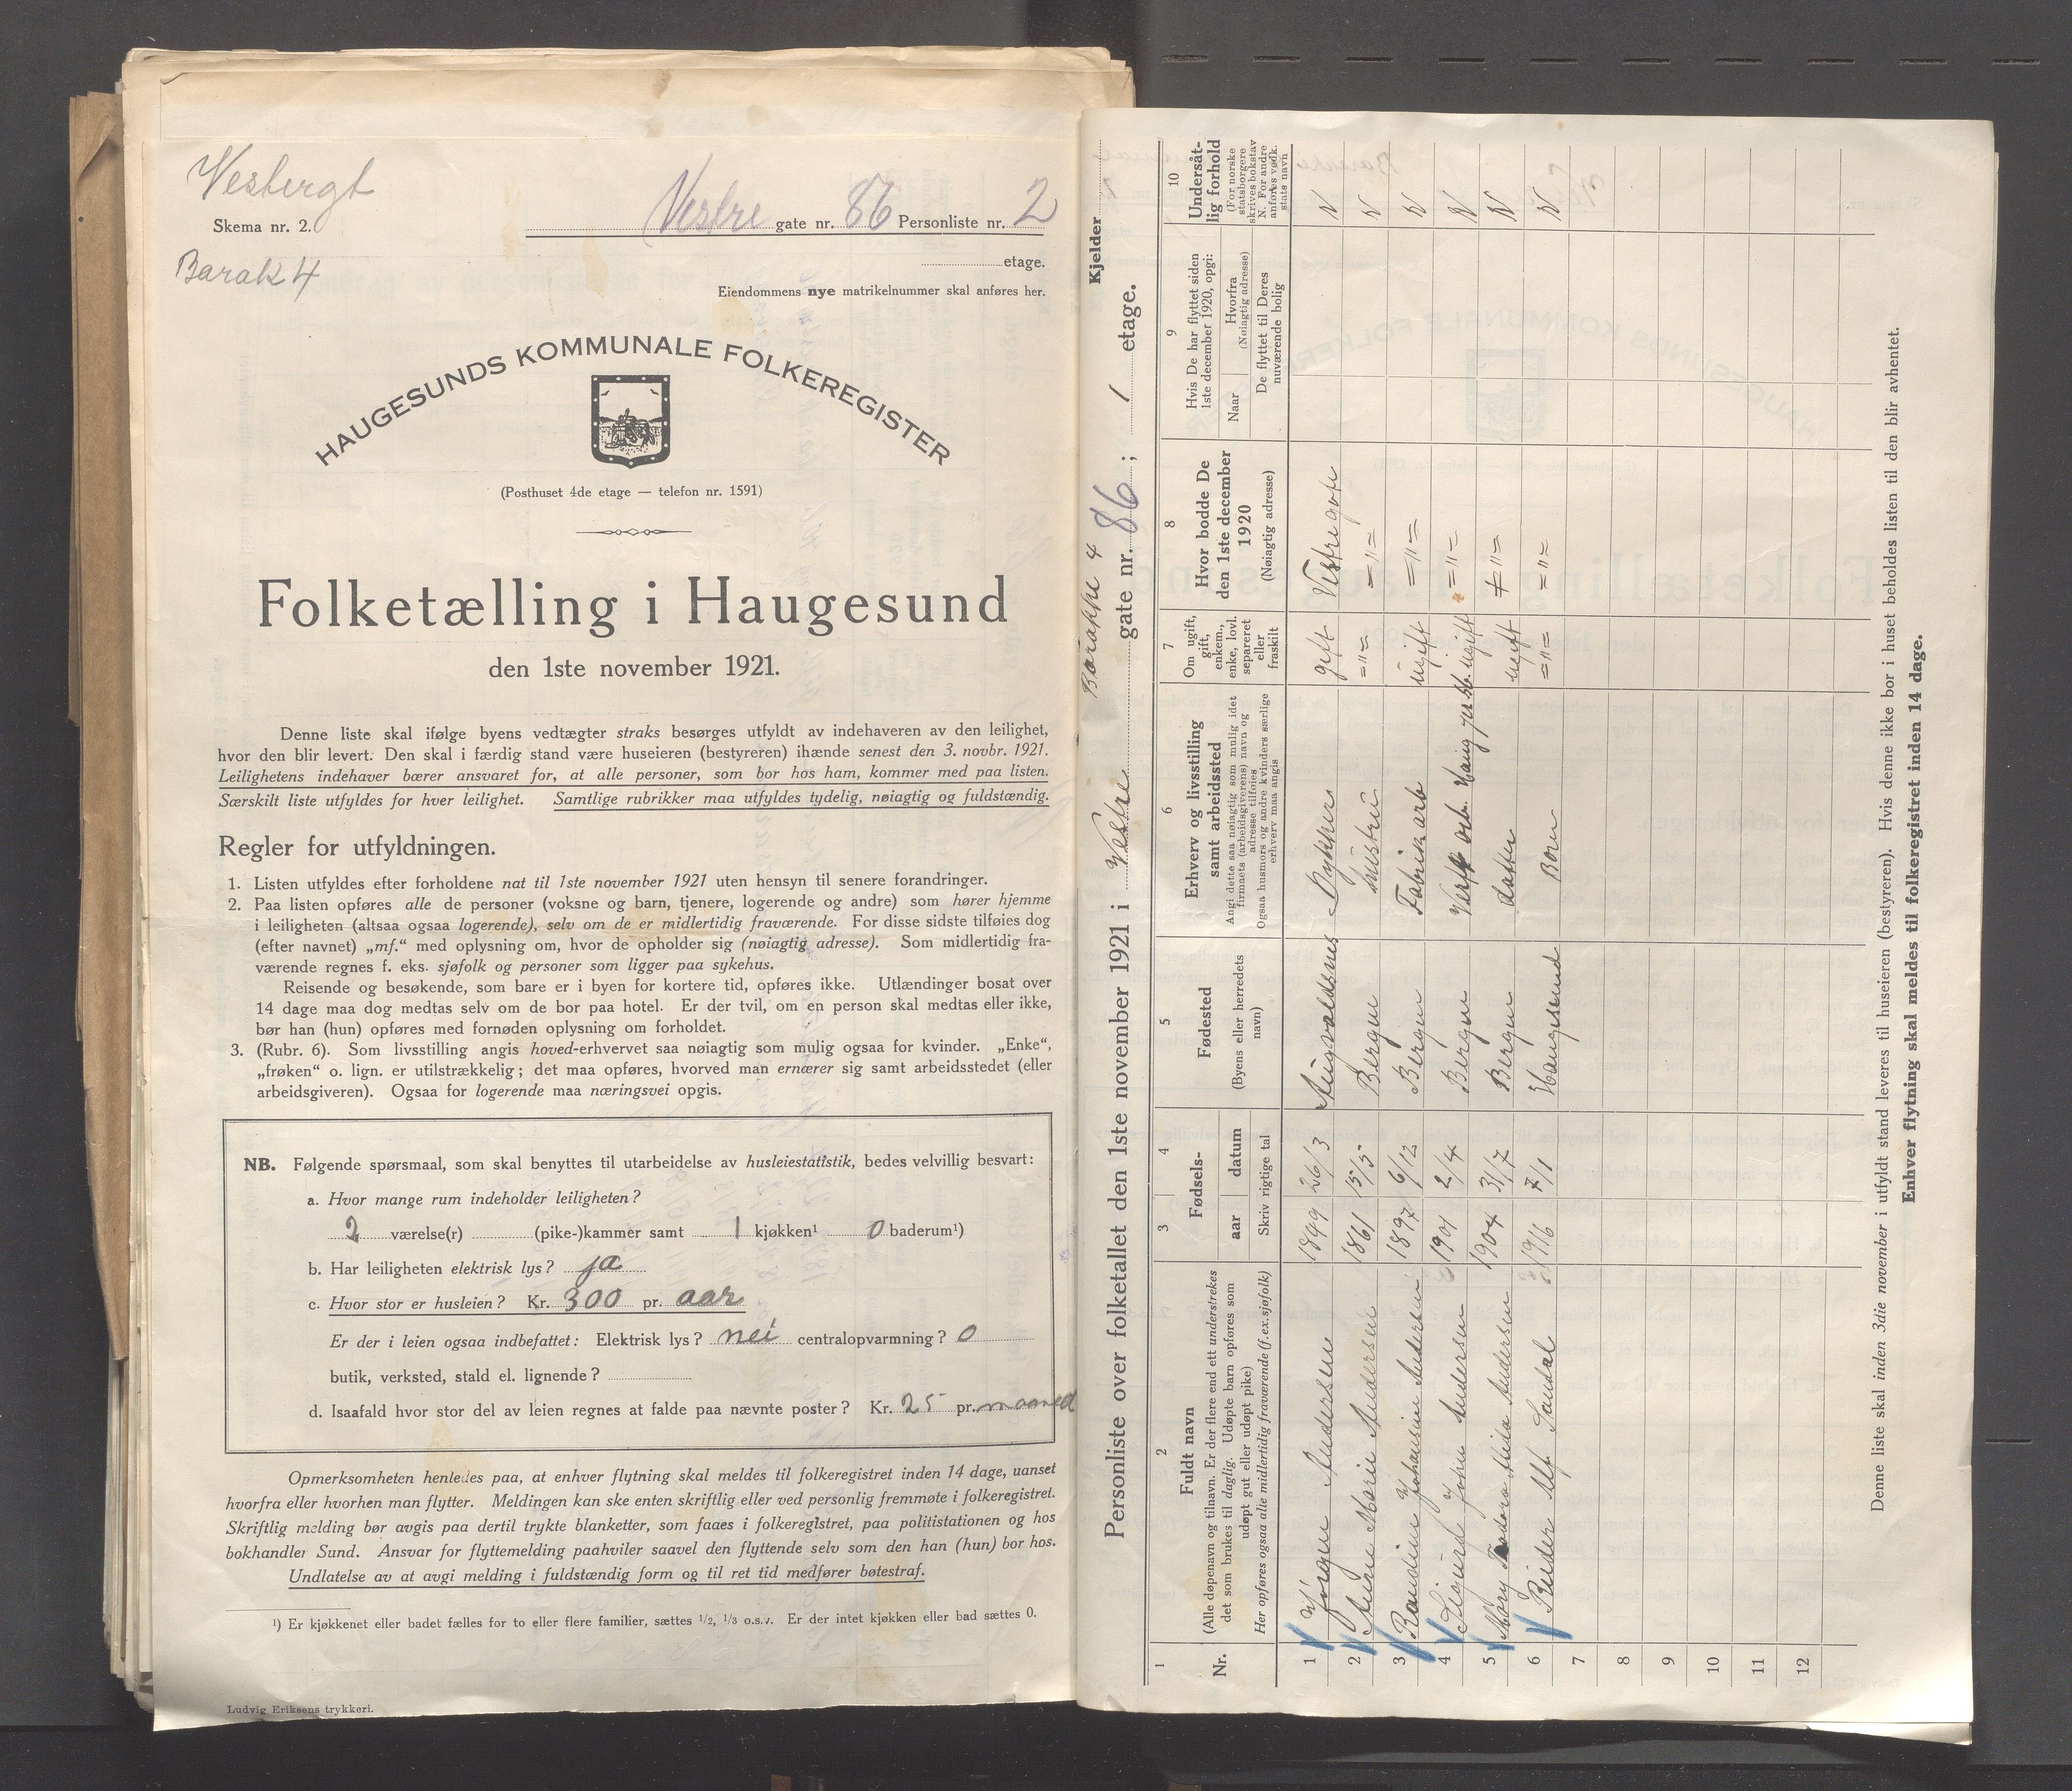 Vestergt
Vestre gate nr. 86 Personliste nr. 2
Skema nr. 2.
Barak 4
etage.
Eiendommens nye matrikelnummer skal anføres her.
HAUGESUNDS KOMMUNALE FOLKEREGISTER
(Posthuset 4de etage — telefon nr. 1591)
Folketælling i Haugesund
den 1ste november 1921.
Denne liste skal ifølge byens vedtægter straks besørges utfyldt av indehaveren av den leilighet,
hvor den blir levert. Den skal i færdig stand være huseieren (bestyreren) ihænde senest den 3. novbr. 1921.
Leilighetens indehaver bærer ansvaret for, at alle personer, som bor hos ham, kommer med paa listen.
Særskilt liste utfyldes for hver leilighet. Samtlige rubrikker maa utfyldes tydelig, nøiagtig og fuldstændig.
Regler for utfyldningen.
1. Listen utfyldes efter forholdene nat til 1ste november 1921 uten hensyn til senere forandringer.
2. Paa listen opføres alle de personer (voksne og barn, tjenere, logerende og andre) som hører hjemme
i leiligheten (altsaa ogsaa logerende), selv om de er midlertidig fraværende. For disse sidste tilføies dog
(efter navnet) „mf.“ med oplysning om, hvor de opholder sig (nøiagtig adresse). Som midlertidig fra-
værende regnes f. eks. sjøfolk og personer som ligger paa sykehus.
Reisende og besøkende, som bare er i byen for kortere tid, opføres ikke. Utlændinger bosat over
14 dage maa dog medtas selv om de bor paa hotel. Er der tvil, om en person skal medtas eller ikke,
bør han (hun) opføres med fornøden oplysning om forholdet.
3. (Rubr. 6). Som livsstilling angis hoved-erhvervet saa nøiagtig som mulig ogsaa for kvinder. „Enke“,
„frøken“ o. lign. er utilstrækkelig; det maa opføres, hvorved man ernærer sig samt arbeidsstedet (eller
arbeidsgiveren). Ogsaa for logerende maa næringsvei opgis.
NB. Følgende spørsmaal, som skal benyttes til utarbeidelse av husleiestatistik, bedes velvillig besvart:
a. Hvor mange rum indeholder leiligheten?
2 værelse(r) (pike-)kammer samt 1 kjøkken¹ 0 baderum¹)
b. Har leiligheten elektrisk lys? ja
c. Hvor stor er husleien? Kr. 300 pr. aar
Er der i leien ogsaa indbefattet: Elektrisk lys? nei centralopvarmning? 0
butik, verksted, stald el. lignende?
d. Isaafald hvor stor del av leien regnes at falde paa nævnte poster? Kr. 25 pr. maaned
Opmerksomheten henledes paa, at enhver flytning skal meldes til folkeregistret inden 14 dage, uanset
hvorfra eller hvorhen man flytter. Meldingen kan ske enten skriftlig eller ved personlig fremmøte i folkeregistret.
Skriftlig melding bør avgis paa dertil trykte blanketter, som faaes i folkeregistret, paa politistationen og hos
bokhandler Sund. Ansvar for flyttemelding paahviler saavel den flyttende selv som den han (hun) bor hos.
Undlatelse av at avgi melding i fuldstændig form og til ret tid medfører bøtestraf.
¹) Er kjøkkenet eller badet fælles for to eller flere familier, sættes 1/2, 1/3 o.s.v. Er der intet kjøkken eller bad sættes 0.
Ludvig Eriksens trykkeri.
Barakke 4
Kjelder
Personliste over folketallet den 1ste november 1921 i Vestre gate nr. 86; 1 etage.
1 2 3 4 5 6 7 8 9 10
Nr.
Fuldt navn
(Alle døpenavn og tilnavn. Er der flere end ett understrekes
det som brukes til daglig. Udøpte barn opføres som
udøpt gut eller udøpt pike)
Her opføres ogsaa alle midlertidig fraværende (f.ex. sjøfolk)
Fødsels-
aar datum
Skriv rigtige tal
Fødested
(Byens eller herredets
navn)
Erhverv og livsstilling
samt arbeidssted
Angi dette saa nøiagtig som mulig idet
firmaets (arbeidsgiverens) navn og
adresse tilføies
Ogsaa husmors og andre kvinders særlige
erhverv maa angis
Om ugift,
gift,
enkem.,
enke, lovl.
separeret
eller
fraskilt
Hvor bodde De
den 1ste december
1920
(Nøiagtig adresse)
Hvis De har flyttet siden
1ste december 1920, opgi:
Naar
Hvorfra
(Nøiagtig adresse)
De flyttet til Deres
nuværende bolig
Undersåt-
lig forhold
(For norske
statsborgere
skrives bokstav
N. For andre
anføres vedk.
stats navn
1 Jørgen Andersen 1849 26/3 Augvaldsnes Bykker gift Vestregate N
2 Anne Marie Andersen 1861 15/5 Bergen hustru =„= =„= N
3 Johansine Andersen 1897 6/12 Bergen Fabrik arb ugift =„= N
4 Sigurd John Andersen 1901 2/4 Bergen Verft arb. ugift =„= N
5 Mary Andersen 1904 31/7 Bergen datter ugift =„= N
6 Reider Alf Sandal 1916 7/1 Haugesund =„= =„= N
7
8
9
10
11
12
Denne liste skal inden 3die november i utfyldt stand leveres til huseieren (bestyreren). Hvis denne ikke bor i huset beholdes listen til den blir avhentet.
Enhver flytning skal meldes til folkeregistret inden 14 dage.